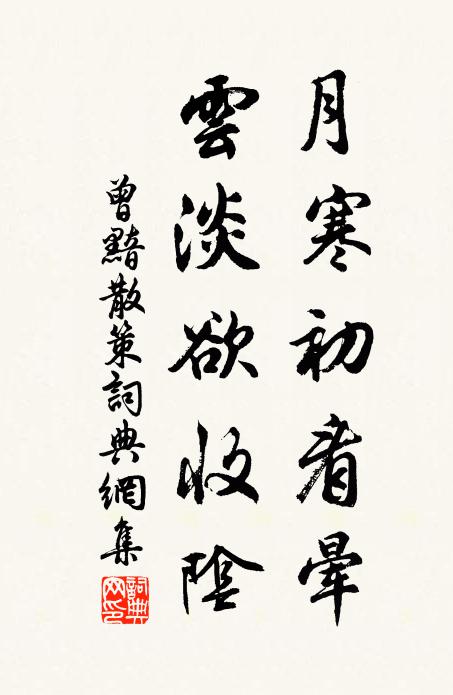 月寒初看暈
雲淡欲收陰
曾黯散策詞典網集
詞典网印